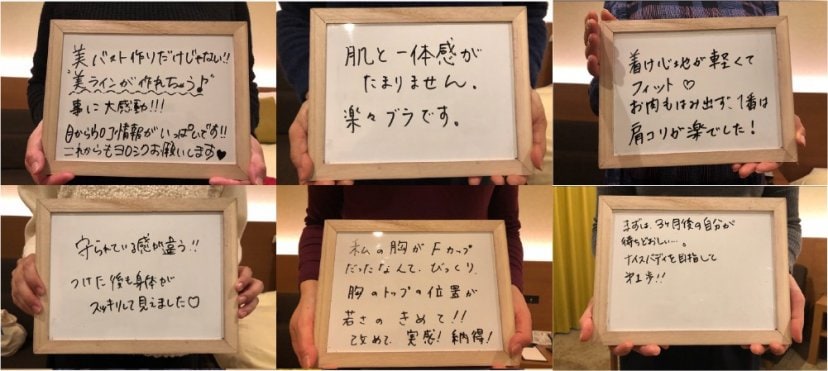 美バスト作りだけじゃない!!
"美ラインが作れちゃう♪"
事に大感動!!!
目からウロコ情報がいっぱいです!!
これからもヨロシクお願いします♥
肌と一体感が
たまりません。
楽々ブラです。
着け心地が軽くて
フィット♡
お肉もはみ出ず、1番は
肩コリが楽でした!
守られている感が違う!!
つけた後も身体が
スッキリして見えました♡
私の胸がFカップ
だったなんて、びっくり、
胸のトップの位置が
若さのきめて!!
改めて、実感!納得!
まずは、3ヶ月後の自分が
待ちどおしい…。
ナイスバディを目指して
第1歩!!